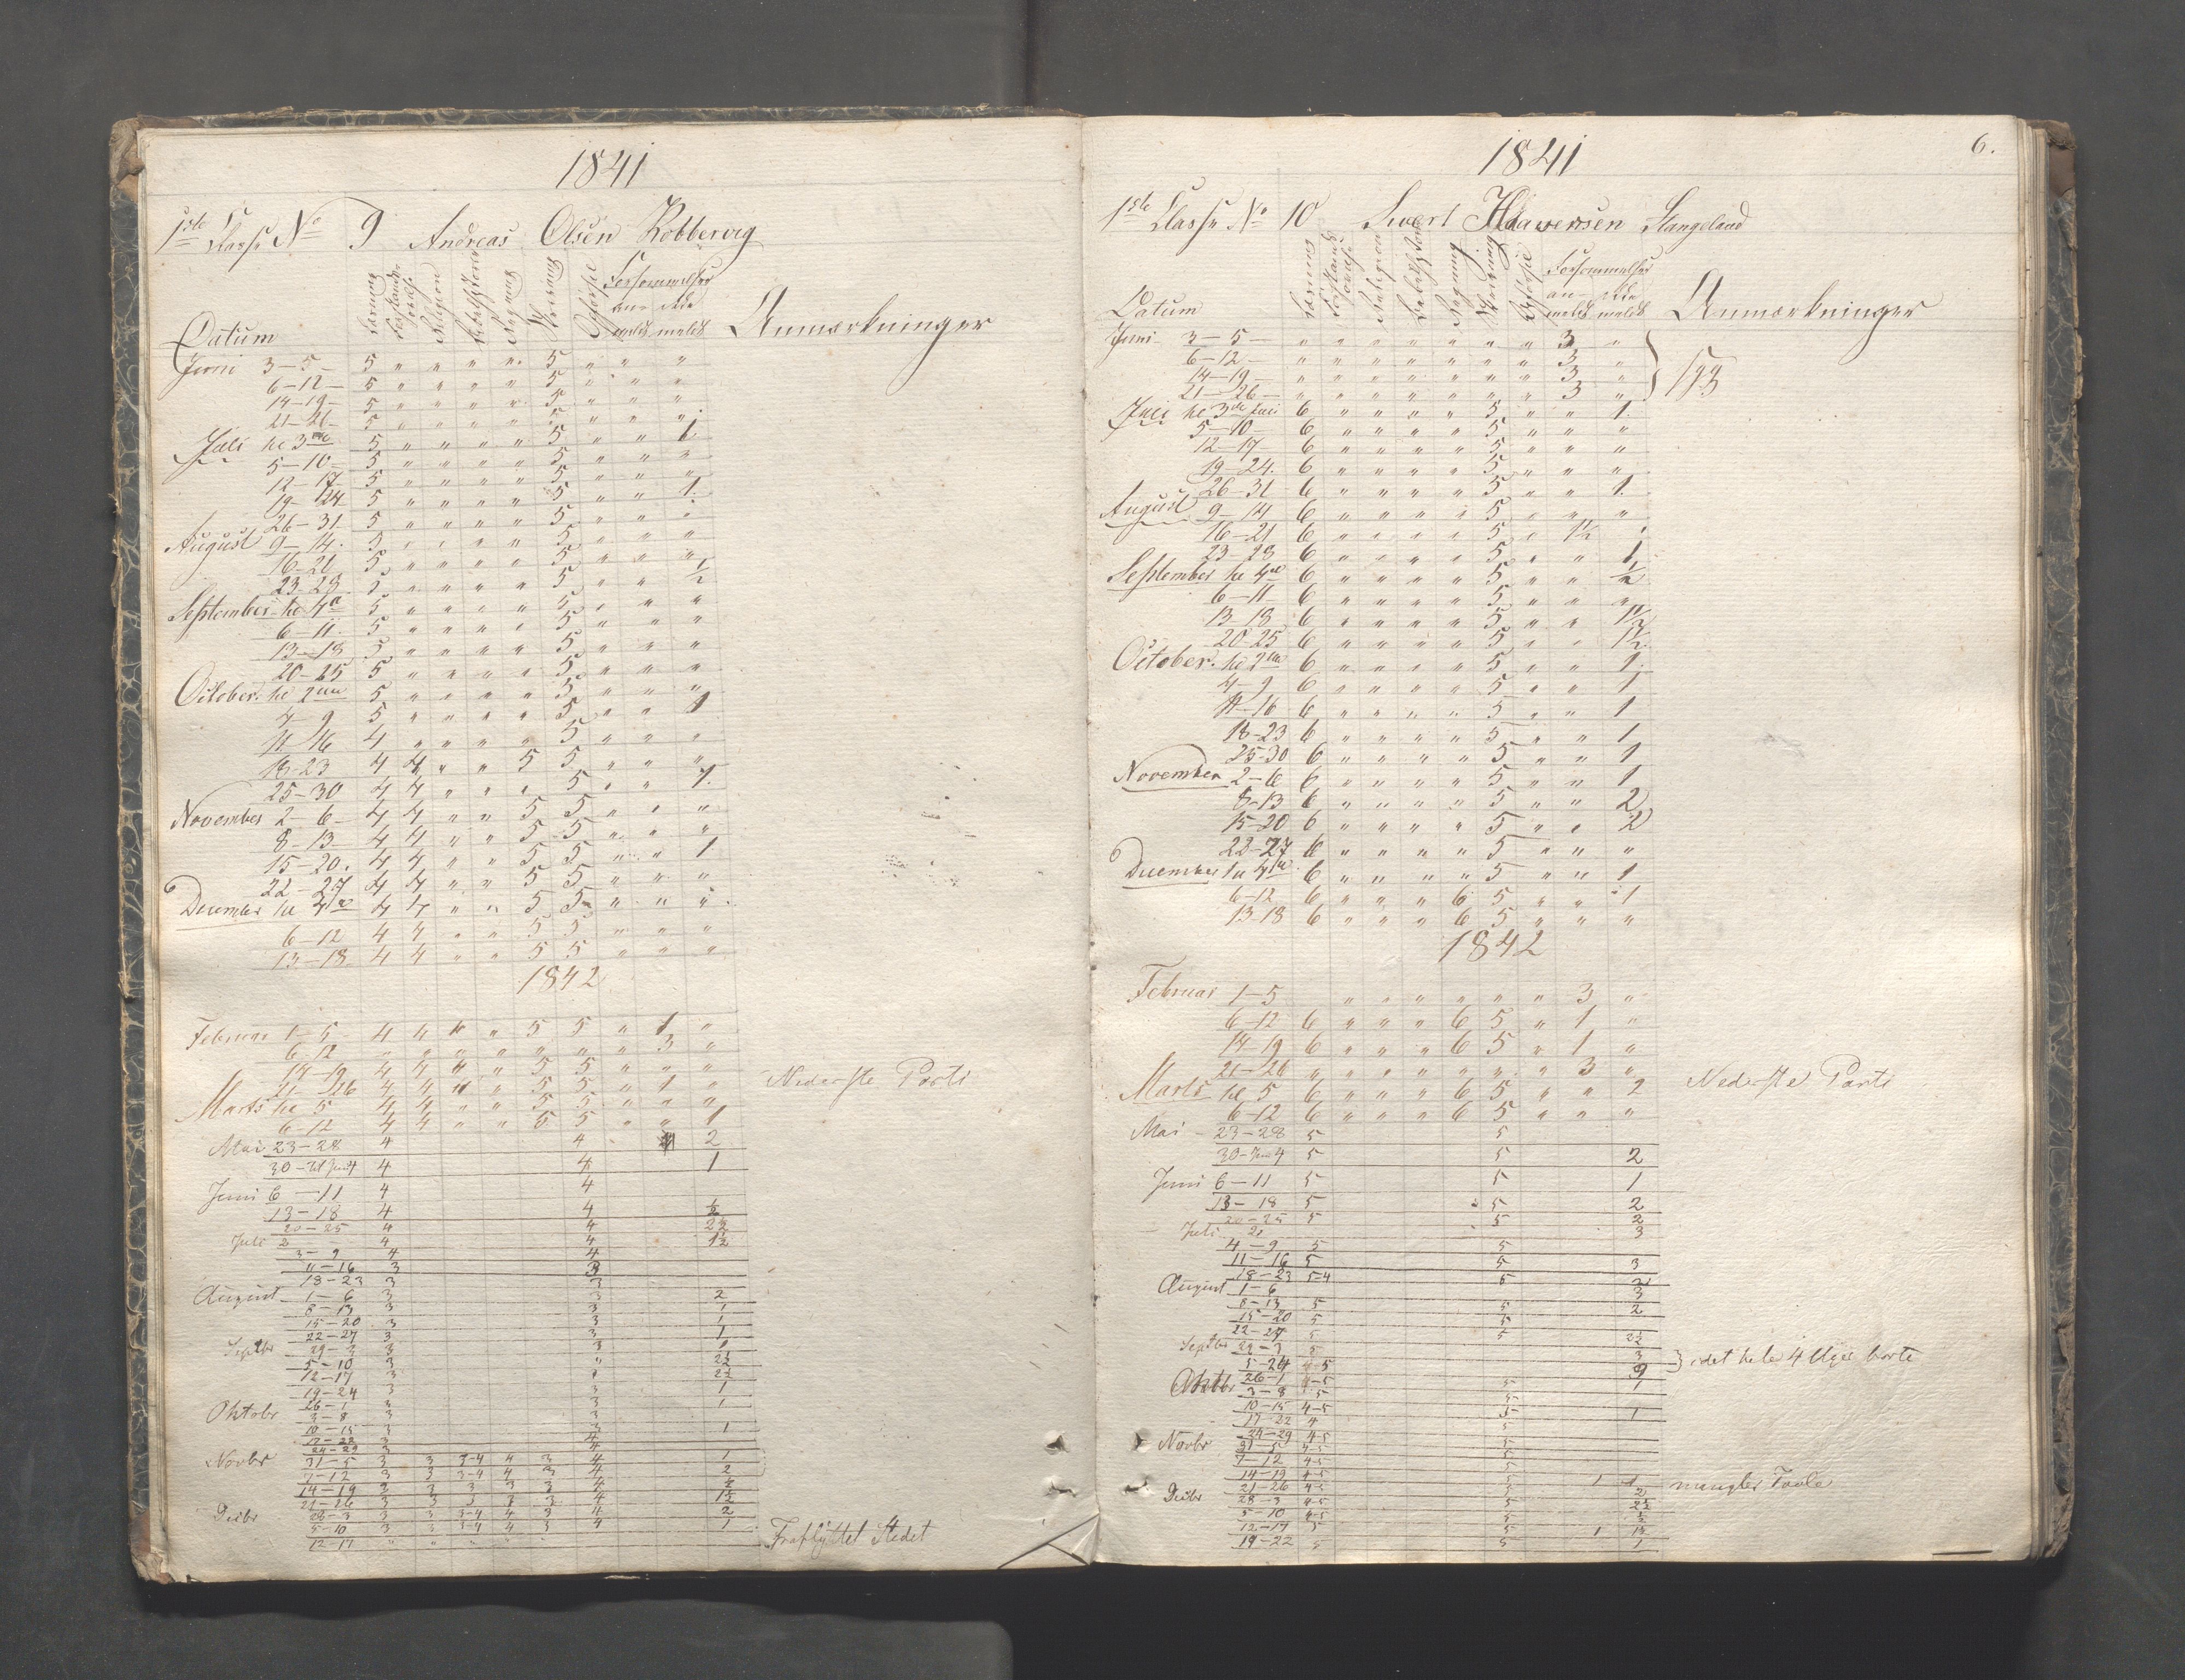 1841
1ste Classe No 9 Andreas Olsen Kobbervig
Datum Læsning Forstands- Religion Regning Skrivning Forsømmelser an- ikke meldt meldt Anmærkninger
Juni 3-5- 5 " " " " 5 " " "
6-12- 5 " " " " 5 " " "
14-19- 5 " " " " 5 " " "
21-26- 5 " " " " 5 " " "
Juli til 3die 5 " " " " 5 " " 1
5-10- 5 " " " " 5 " " "
12-17 5 " " " " 5 " " "
19-24 5 " " " " 5 " " 1.
26-31 5 " " " " 5 " " "
August 9-14. 5 " " " " 5 " " "
16-21 5 " " " " 5 " " "
23-28 5 " " " " 5 " " 1/2
September til 4de 5 " " " " 5 " " "
6-11. 5 " " " " 5 " " "
13-18 5 " " " " 5 " " "
20-25 5 " " " " 5 " " "
October. til 2den 5 " " " " 5 " " "
4-9 5 " " " " 5 " " 1
11-16 4 " " " " 5 " " "
18-23 4 4 " " 5 5 " " "
25-30 4 4 " " " 5 " " 1.
November 2-6- 4 4 " " 5 5 " " "
8-13- 4 4 " " 5 5 " " "
15-20. 4 4 " " 5 5 " " 1
22-27 4 4 " " 5 5 " " "
December til 4de 4 4 " " 5 5 " " "
6-12 4 4 " " 5 5 " " "
13-18 4 4 " " 5 5 " " "
1842
Februar 1-5 4 4 " " 5 5 " 1 "
6-12 " " " " " " " 3 "
14-19 4 4 " " 5 5 " " "
21-26 4 4 " " 5 5 " 1 " Nederste Parti
Marts til 5 4 4 " " 5 5 " " "
6-12 4 4 " " 5 5 " " 1
Mai 23-28 4 4 2
30-til Juni 4 4 4 1
Juni 6-11 4 4
13-18 4 4 1/2
20-25 4 4 2 1/2
Juli 2 4 4 1 1/2
3-9 4 4
11-16 3 3
18-23 3 3
August 1-6 3 3 2
8-13 3 3 1
15-20 3 3 1
22-27 3 3 1
Septbr 29-3 3 3 1
5-10 3 " 2 1/2
12-17 3 " 2 1/2
19-24 3 3 1
26-1 3 3 1
Oktobr 3-8 3 3
10-15 3 3 1
17-22 3 4
24-29 3 4
Novbr 31-5 3 3 3-4 4 3 4 1
7-12 3 3 3-4 4 3 4 2
14-19 3 3 3 3 3 4 1/2
21-26 3 3 3 3 3 4 1 1/2
Decbr 28-3 3 3 3-4 4 3 4 2
5-10 3 3 3-4 4 3 4 1
12-17 " " " Fraflyttet Stedet
6.
1841
1ste Classe No 10 Sivert Haaversen Stangeland
Datum Læsning Forstands- Religion Regning Skrivning Forsømmelser an- ikke meldt meldt Anmærkninger
Juni 3-5- " " " " " " " 3 "
6-12- " " " " " " " 3 "
14-19- " " " " " " " 3 "
21-26- " " " " " " " 3 "
Juli til 3die Juli 6 " " " " 5 " " 1.
5-10- 6 " " " " 5 " " "
12-17 6 " " " " 5 " " "
19-24. 6 " " " " 5 " " "
26-31 6 " " " " 5 " " 1.
August 9-14 6 " " " " 5 " " "
16-21 6 " " " " 5 " 1 1/2 "
23-28 6 " " " " 5 " " 1
September til 4de 6 " " " " 5 " " 1/2
6-11 6 " " " " 5 " " "
13-18 6 " " " " 5 " " 1 1/2
20-25 6 " " " " 5 " " 1 1/2
October. til 2den 6 " " " " 5 " " 1.
4-9 6 " " " " 5 " " 1
11-16 6 " " " " 5 " " 1
18-23 6 " " " " 5 " " 1
25-30 6 " " " " 5 " " 1
November 2-6 6 " " " " 5 " " 1
8-13 6 " " " " 5 " " 2
15-20 6 " " " " 5 " " 2
22-27 6 " " " " 5 " " "
December til 4de 6 " " " " 5 " " 1
6-12 6 " " " 6 5 " " 1
13-18 6 " " " 6 5 " " "
1842
Februar 1-5 " " " " " " 3 "
6-12 6 " " " 6 5 " 1 "
14-19 6 " " " 6 5 " 1 "
21-26 " " " " " " " 3 "
Marts til 5 6 " " " 6 5 " " 2 Nederste Parti
6-12 6 " " " 6 5 " " "
Mai - 23-28 5 5
30-Juni 4 5 5 2
Juni 6-11 5 5 1
13-18 5 5 2
20-25 5 5 2
Juli 2 3
4-9 5 5
11-16 5 5 3
18-23 5-4 5 3
August 1-6 3
8-13 5 5 2
15-20 5 5
22-27 5 5 2 1/2
Septbr 29-3 5 3
5-24 4-5 9 } idet hele 4 Uger borte
26-1 4-5 5 1
Oktbr 3-8 5 5
10-15 4-5 5 1
17-22 4 5
24-29 4-5 5
Novbr 31-5 4-5 5
7-12 4-5 5
14-19 4-5 5 1 1 mangler Tavle
21-26 4-5 5 2
Decbr 28-3 4-5 5 2 1/2
5-10 4-5 5 1/2
12-17 5 5 1 1 1/2
19-22 5 5 1